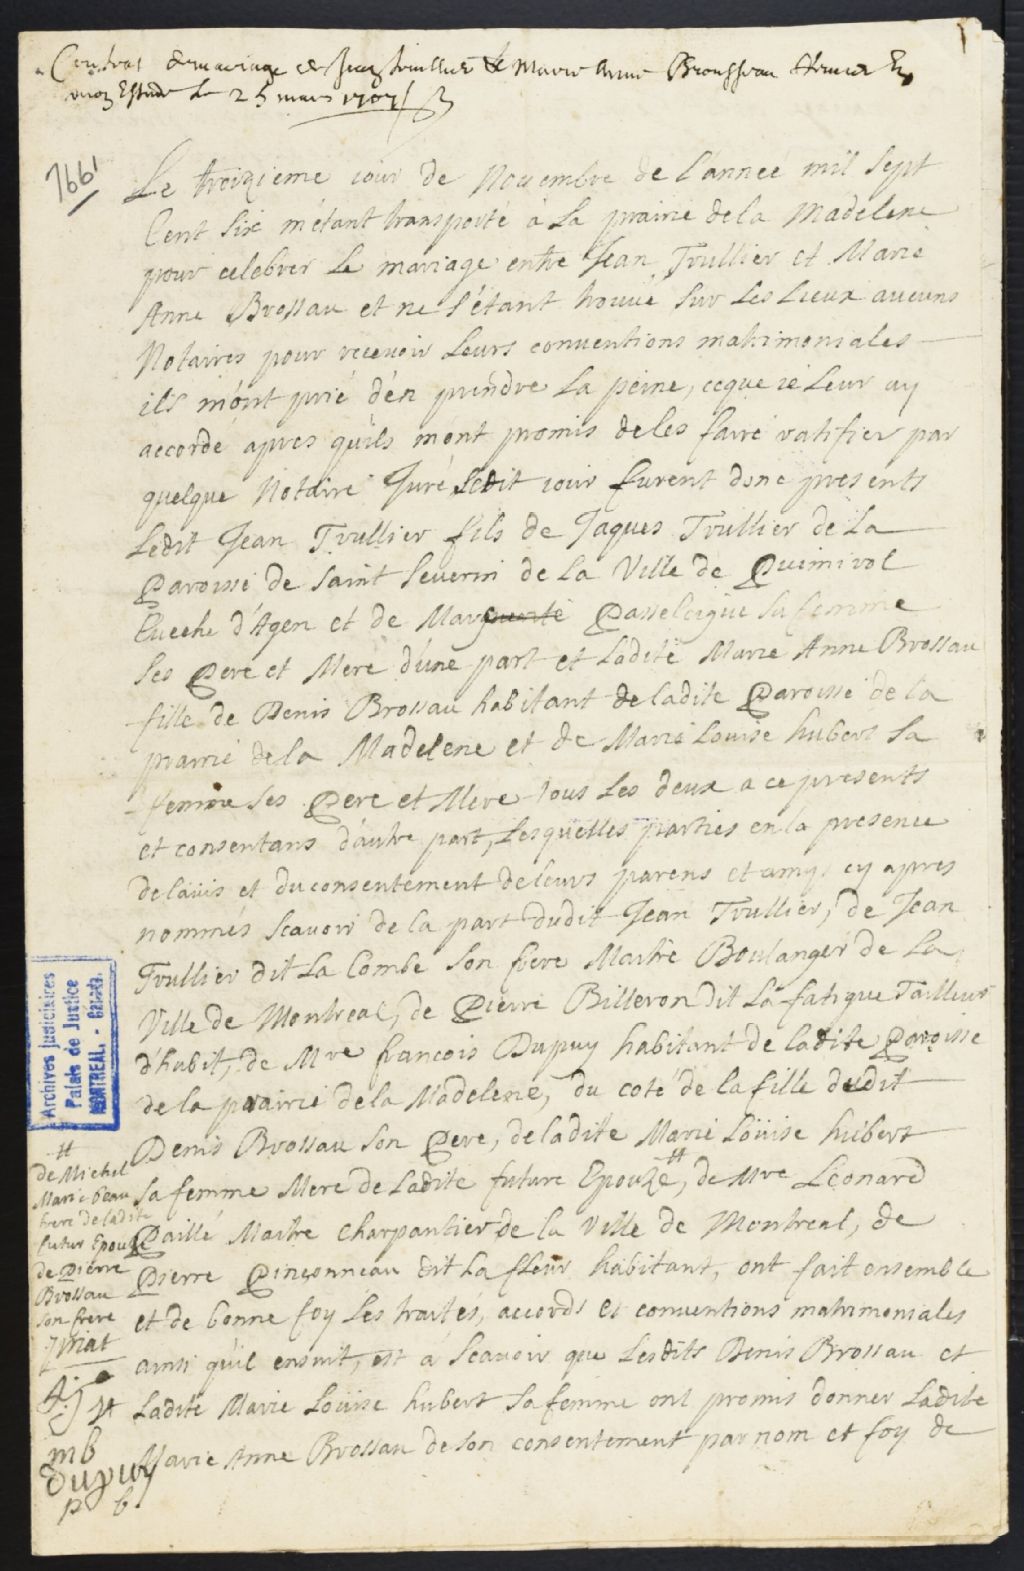 Contrat de mariage de Jean trullier & Marie Anne Brousseau
mon Estude Le 25 mars 1707
7661
Le troizieme iour de Nouembre de l'anneé mil Sept
Cent Six m'étant transporté à La prairie de la Madelene
pour celebrer Le mariage entre Jean Trullier et Marie
Anne Brossau et ne s'étant trouué Sur Les Lieux aucuns
Notaires pour receuoir Leurs conuentions matrimoniales
ils m'ont prié d'en prendre La peine, ceque ie Leur ay
accordé apres quils mont promis de les faire ratifier par
quelque Notaire Juré Ledit iour furent donc presents
Ledit Jean Trullier fils de Jaques Trullier de La
Paroisse de Saint Seuerin de La Ville de
Eueche d'Agen et de Marguerite Sa femme
Ses Pere et Mere d'une part et Ladite Marie Anne Brossau
fille de Denis Brossau habitant de ladite Paroisse de la
prairie de la Madelene et de Marie Louise hubert Sa
femme Ses Pere et Mere tous Les deux a ce presents
et consentans d'autre part, Lesquelles parties en la presence
de l'auis et du consentement de leurs parens et amys cy apres
nommés Scauoir de la part dudit Jean Trullier, de Jean
Trullier dit La Combe Son frere Maitre Boulanger de La
Ville de Montreal, de Pierre Billeron dit La fatigue Tailleur
d'habit, de Mre francois Dupuy habitant de ladite Paroisse
de la prairie de la Madelene, du coté de la fille dudit
Denis Brossau Son Pere, de ladite Marie Loüise hubert
Sa femme Mere de Ladite future Epouze #, de Mre Léonard
Paillé Maitre Charpantier de la Ville de Montreal, de
Pierre Pinçonneau dit La fleur habitant, ont fait ensemble
et de bonne foy Les traités, accords et conuentions matrimoniales
ainsi qu'il ensuit, est à Scauoir que Lesdits Denis Brossau et
Ladite Marie Loüise hubert Sa femme ont promis donner Ladite
Marie Anne Brossau de Son consentement par nom et foy de
Archives Judiciaires
Palais de Justice
MONTREAL. - Canada.
#
de Michel
Marie beau
frere de ladite
futur Epouze
de Pierre
Brossau
Son frere
mb
Dupuy
p b